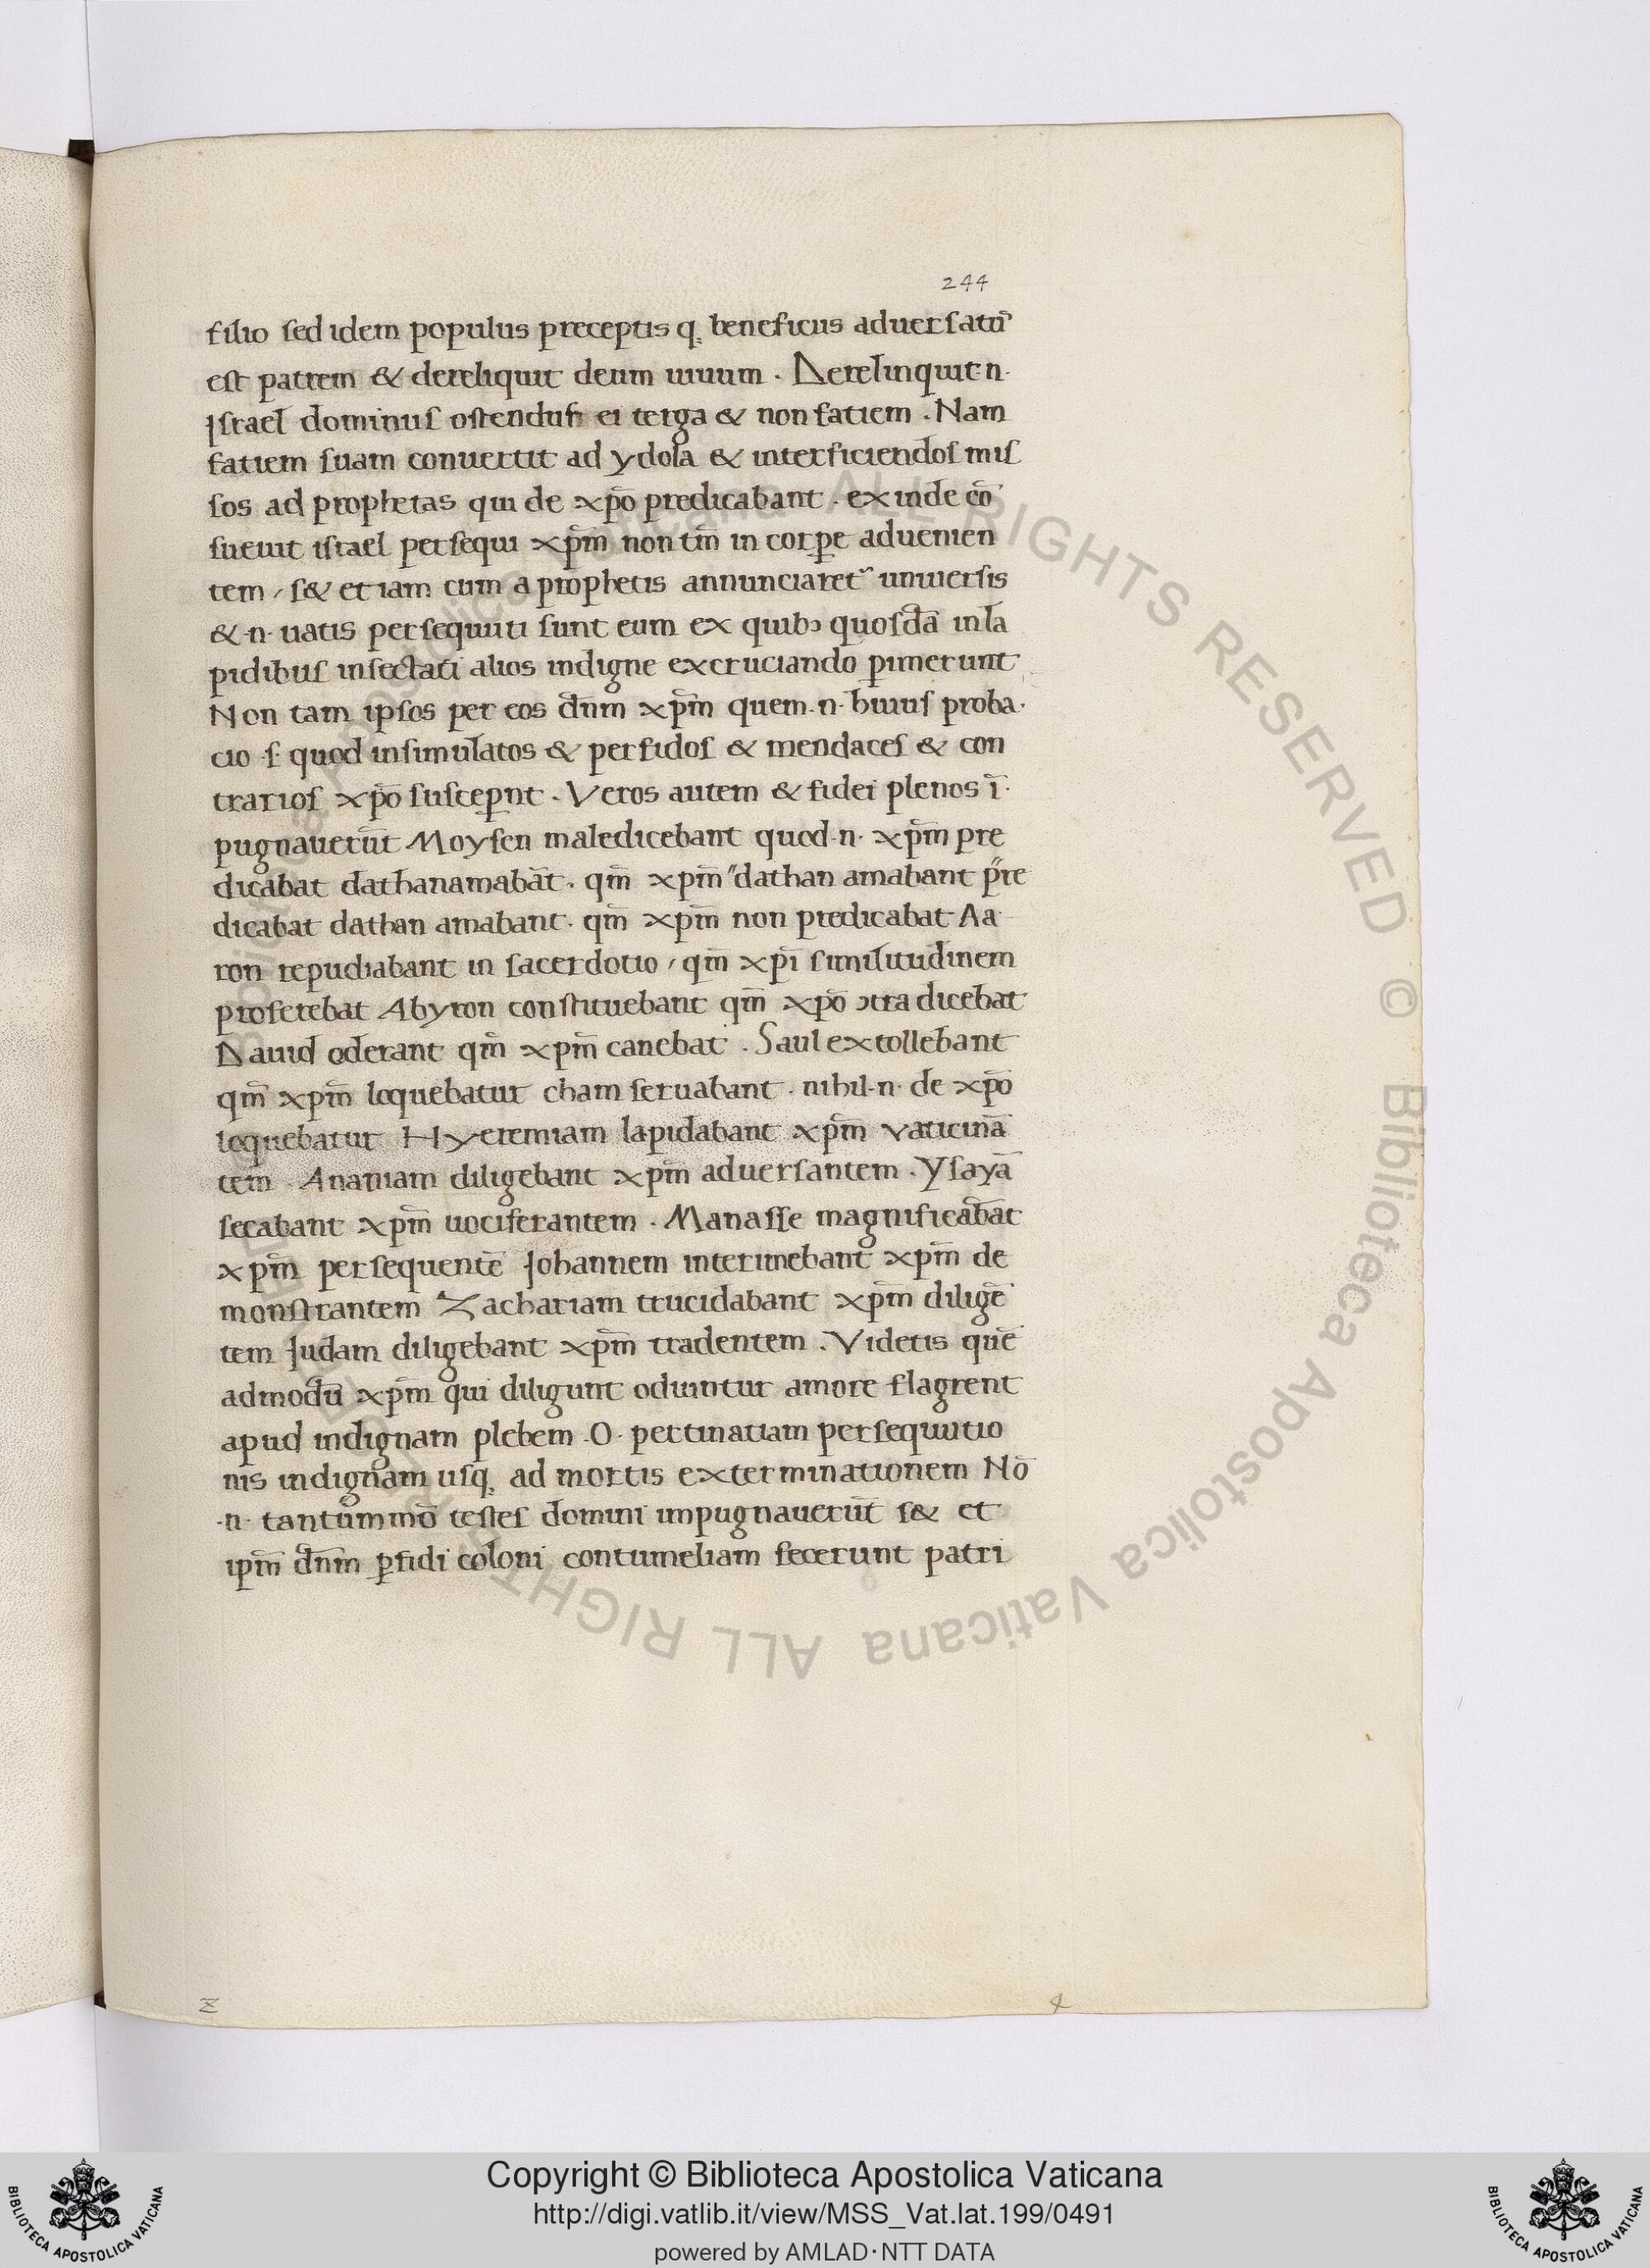 244
filio sed idem populus preceptis q; beneficus aduersatꝰ
est patrem & dereliquit deum uiuum . Derelinquit n.
Israel dominus ei terga & non fatiem . Nam
fatiem suam conuertit ad ydola & interficiendos mis
sos ad prophetas qui de xp̄o predicabant . ex inde cō
sueuit israel persequi xp̄m non tm̄ in corꝑe aduenien
tem , s& etiam cum a prophetis annunciaret᷑ uniuersis
& .n. uatis persequuti sunt eum ex quibꝫ quosdā in la
pidibus insectati alios indigne excruciando ꝑimerunt
Non tam ipsos per eos dn̄m xp̄m quem .n. huius proba.
cio .s. quod insimulatos & perfidos & mendaces & con
trarios xp̄o susceꝑnt . Veros autem & fidei plenos ī.
pugnauerūt Moysen maledicebant quod .n. xp̄m pre
dicabat dathanamabāt . qm̄ xp̄m "dathan amabant p"re
dicabat dathan amabant . qm̄ xp̄m non predicabat Aa
ron repudiabant in sacerdotio , qm̄ xp̄i similitudinem
proferebat Abyron constituebant qm̄ xp̄o ↄtra dicebat
Dauid oderant qm̄ xp̄m canebat . Saul extollebant
qm̄ xp̄m loquebatur cham seruabant . nihil .n. de xp̄o
loquebatur Hyeremiam lapidabant xp̄m vaticinā
tem . Ananiam diligebant xp̄m aduersantem . Ysayā
secabant xp̄m uociferantem . Manasse magnificabāt
xp̄m persequentē Johannem interimebant xp̄m de
monstrantem Zachariam trucidabant xp̄m diligē
tem Judam diligebant xp̄m tradentem . Videtis quē
admodū xp̄m qui diligunt oduintur amore flagrent
apud indignam plebem . O . pertinatiam persequutio
nis indignam usq; ad mortis exterminationem Nō
.n. tantūmmō testes domini impugnauerūt s& et
ipm̄ dn̄m ꝑfidi coloni contumeliam fecerunt patri
Biblioteca Apostolica Vaticana ALL RIGHTS RESERVED © Biblioteca Apostolica Vaticana ALL RIGHT
Copyright © Biblioteca Apostolica Vaticana
http://digi.vatlib.it/view/MSS_Vat.lat.199/0491
powered by AMLAD·NTT DATA
BIBLIOTECA APOSTOLICA VATICANA
BIBLIOTECA APOSTOLICA VATICANA